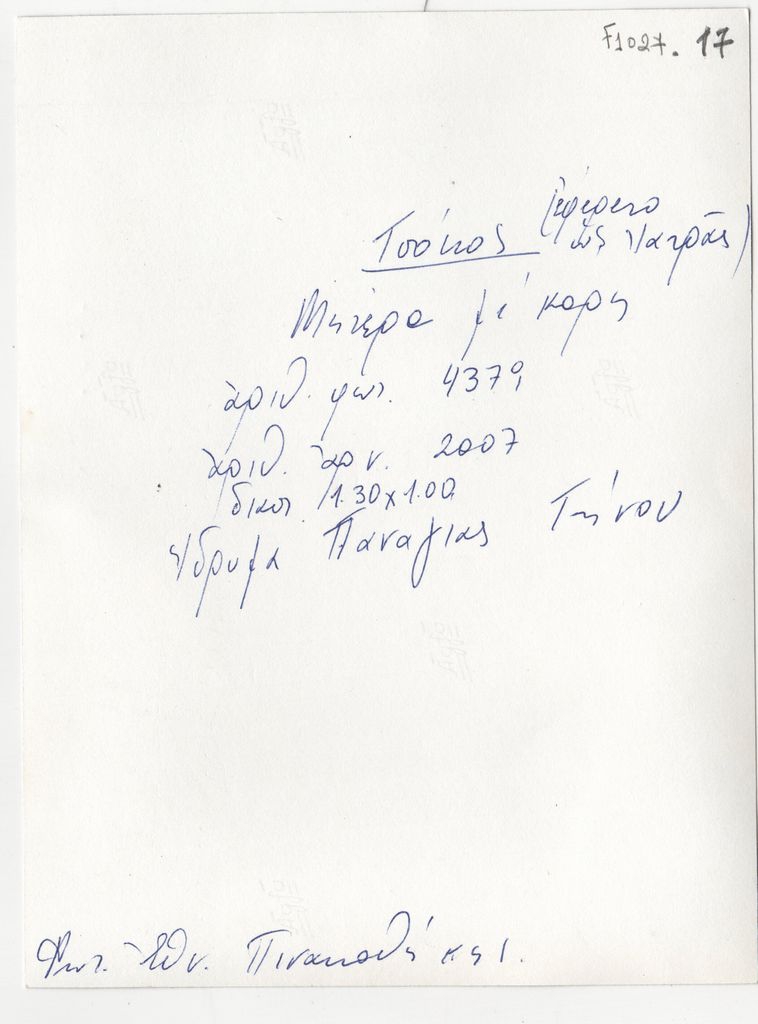 F1027. 17
Τσόκος (ἐφέρετο
ὡς Πατρᾶς)
Μητέρα μέ κόρη
ἀριθ. φωτ. 4379
ἀριθ. ἀρν. 2007
διαστ. 1.30x1.00
Ἵδρυμα Παναγίας Τήνου
Φωτ. Ἐθν. Πινακοθήκης.